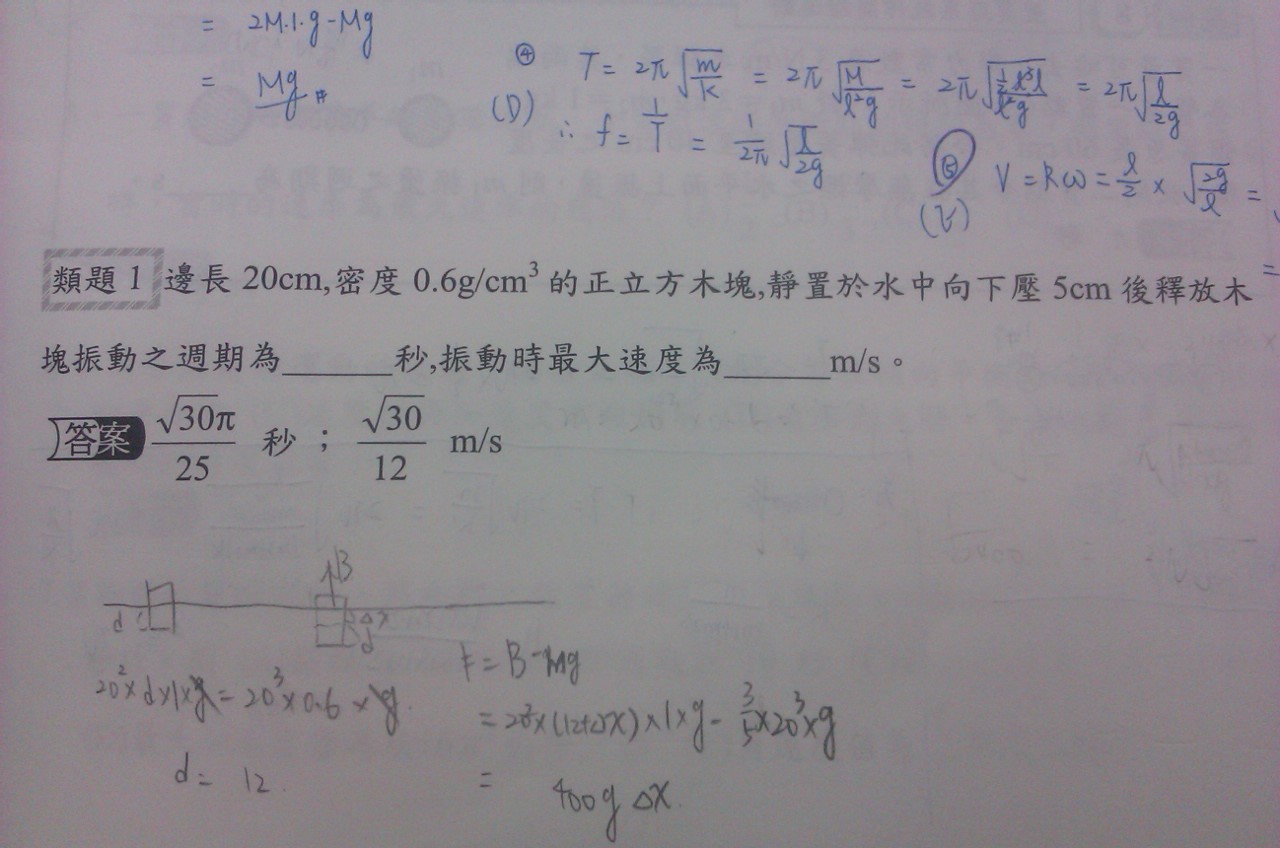 = 2M·1·g-Mg
= Mg #
④ T = 2π√(m/k) = 2π√(M/ℓ²g) = 2π√(½ℓ³·1/ℓ²g) = 2π√(ℓ/2g)
(D) ∴ f = 1/T = 1/2π √(ℓ/2g)
⑤ V = Rω = ℓ/2 × √(2g/ℓ) =
(E)
=
類題 1 邊長 20cm,密度 0.6g/cm³ 的正立方木塊,靜置於水中向下壓 5cm 後釋放木
塊振動之週期為______秒,振動時最大速度為______m/s。
答案 √30π/25 秒 ; √30/12 m/s
B
d Δx
d
20²×d×1×g = 20³×0.6×g
d = 12
F = B-Mg
= 20²×(12+Δx)×1×g - 3/5×20³×g
= 400g Δx